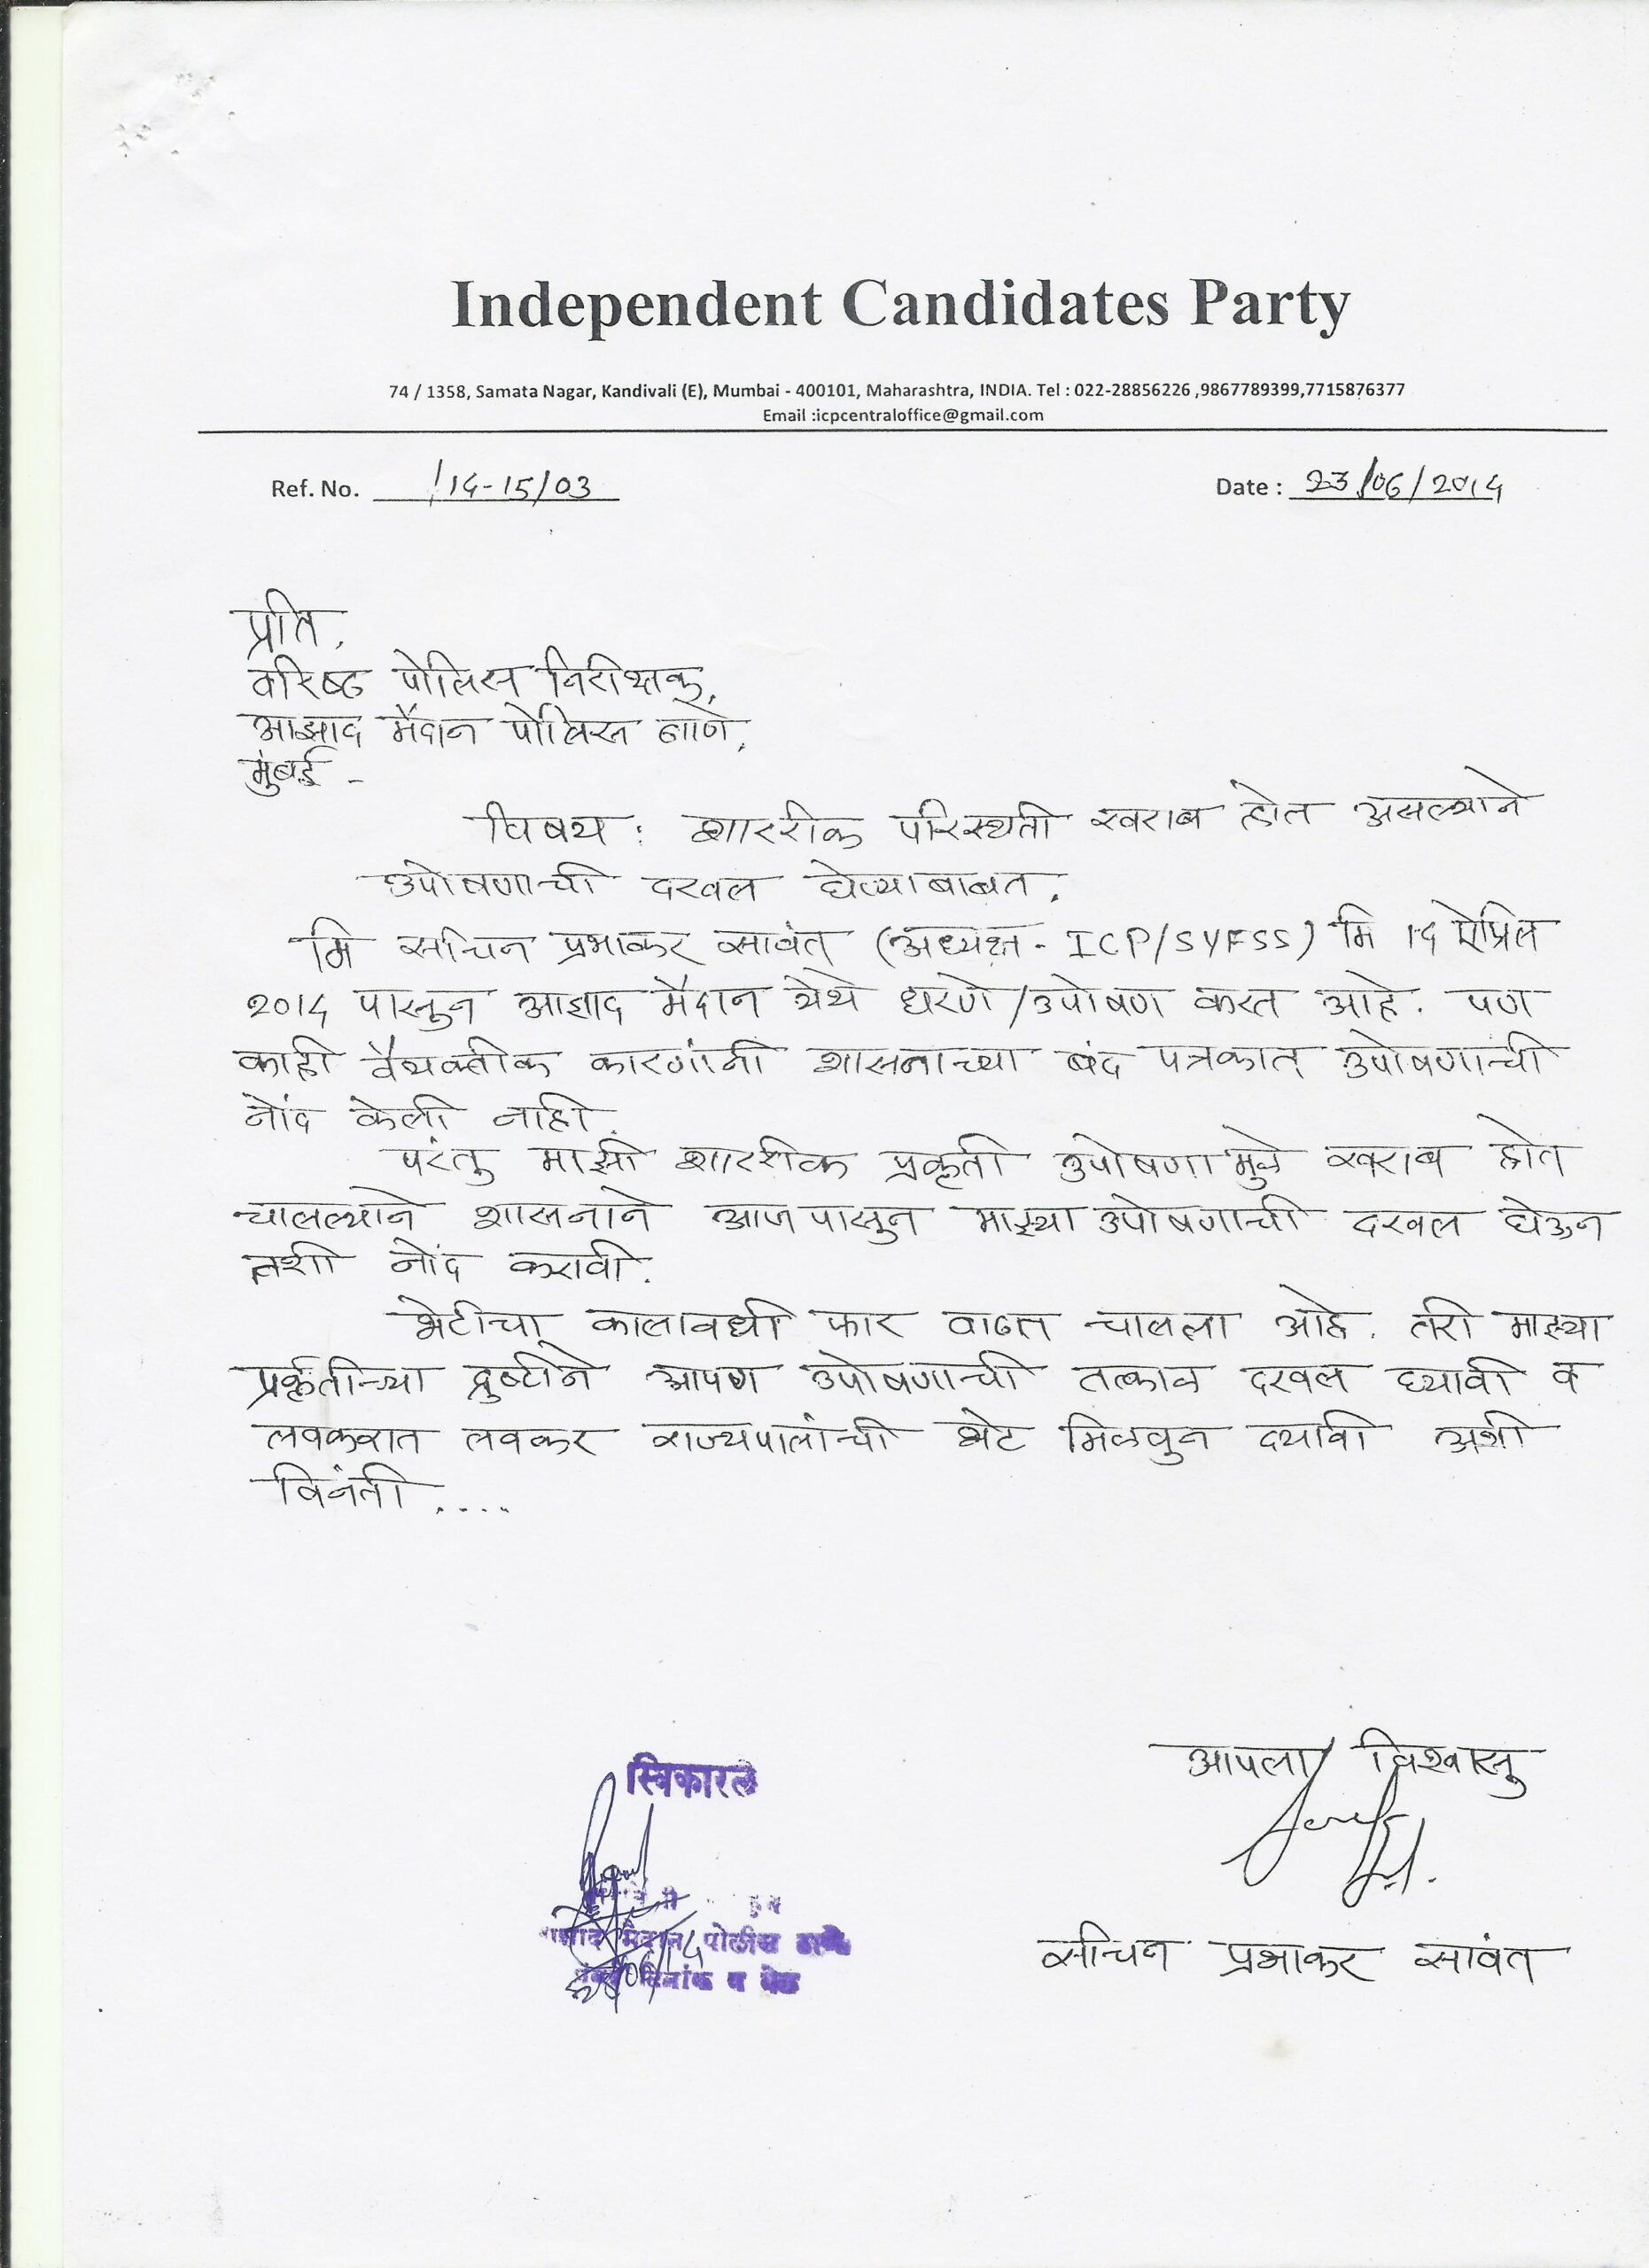 Independent Candidates Party
74 / 1358, Samata Nagar, Kandivali (E), Mumbai - 400101, Maharashtra, INDIA. Tel : 022-28856226 ,9867789399,7715876377
Email :icpcentraloffice@gmail.com
Ref. No. /14-15/03 Date : 23/06/2014
प्रति,
वरिष्ठ पोलिस निरीक्षक,
आझाद मैदान पोलिस ठाणे,
मुंबई -
विषय : शाररीक परिस्थती खराब होत असल्याने
उपोषणाची दखल घेण्याबाबत.
मि सचिन प्रभाकर सावंत (अध्यक्ष - ICP/SYFSS) मि 14 ऐप्रिल
2014 पासुन आझाद मैदान येथे धरणे/उपोषण करत आहे. पण
काही वैयक्तीक कारणांनी शासनाच्या बंद पत्रकात उपोषणाची
नोंद केली नाही.
परंतु माझी शाररीक प्रकृती उपोषणामुळे खराब होत
चालल्याने शासनाने आजपासुन माझ्या उपोषणाची दखल घेऊन
तशी नोंद करावी.
भेटीचा कालावधी फार वाढत चालला आहे. तरी माझ्या
प्रकृतीच्या द्रुष्टीने आपण उपोषणाची तत्काळ दखल घ्यावी व
लवकरात लवकर राज्यपालांची भेट मिळवुन दयावी अशी
विनंती ....
आपला विश्वासु
स्विकारले
मैदान पोलीस ठाणे
दिनांक व वेळ
सचिन प्रभाकर सावंत